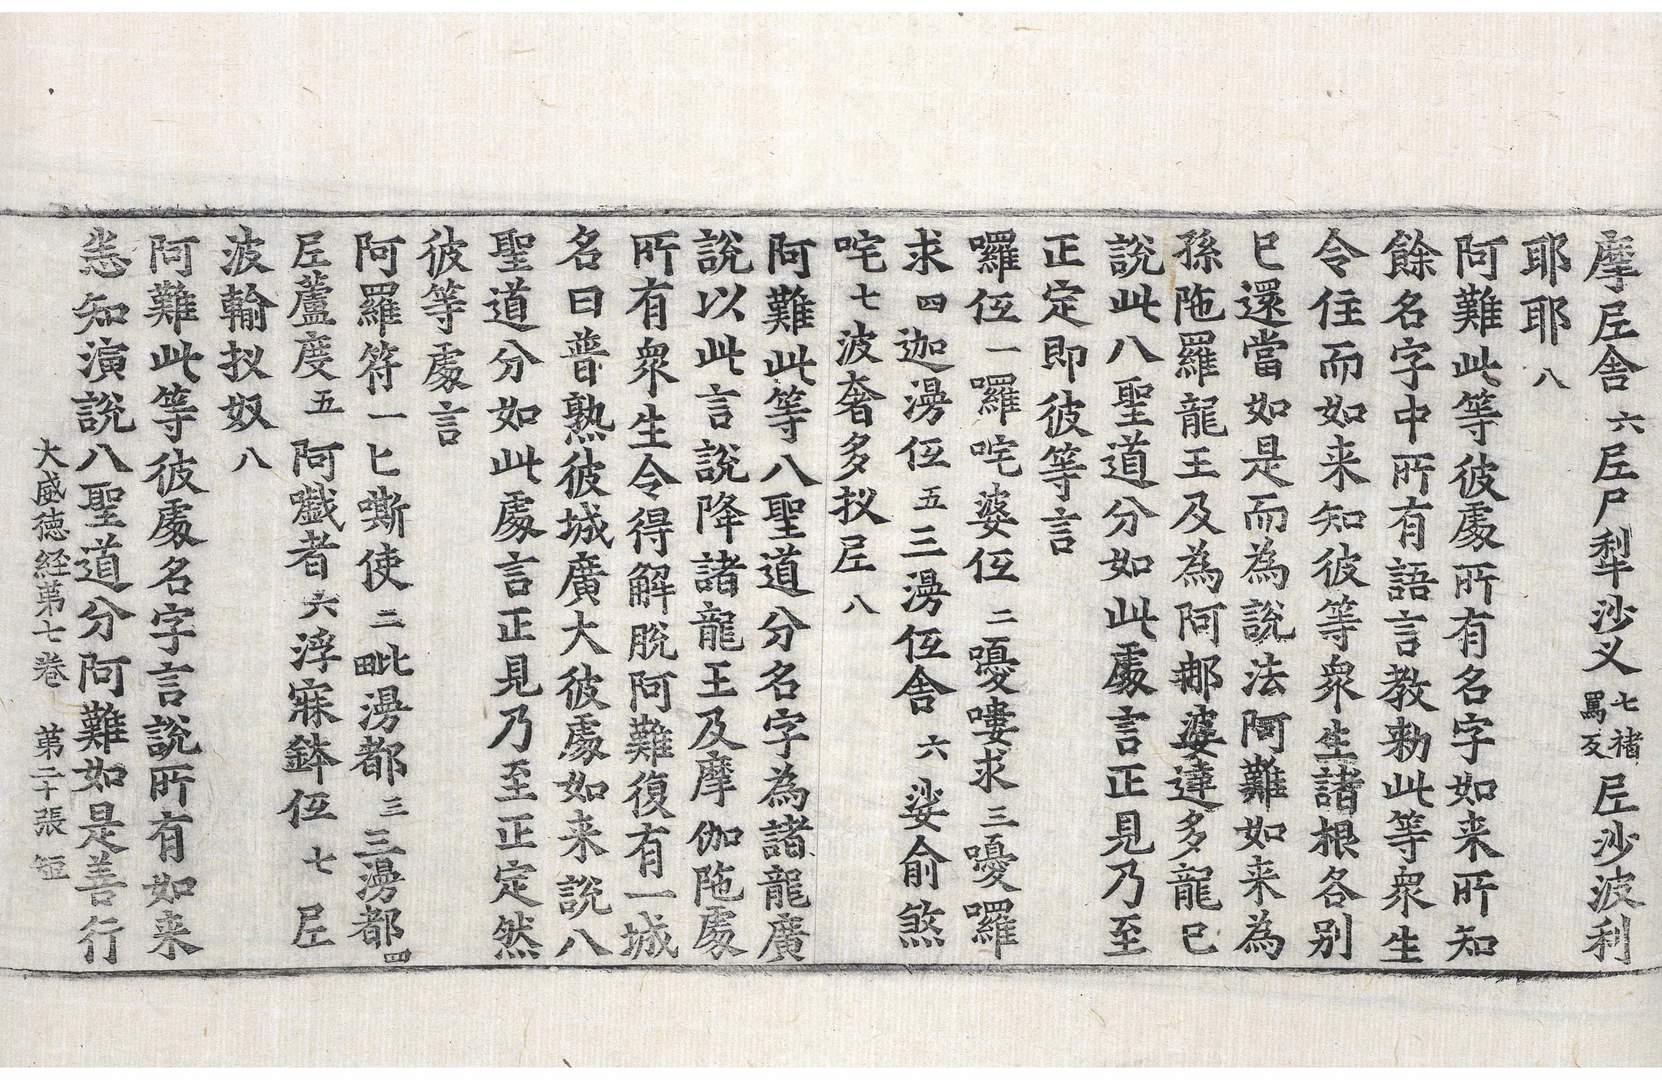 摩𡰱舍六𡰱尸犁沙叉七褚罵反𡰱沙波利
耶耶八
阿難此等彼處所有名字如来所知
餘名字中所有語言教勑此等衆生
令住而如来知彼等衆生諸根各别
已還當如是而為說法阿難如来為
孫陁羅龍王及為阿那婆達多龍已
說此八聖道分如此處言正見乃至
正定即彼等言
囉仾一囉咤婆仾二嚘嘍求三嚘囉
求四迦湯仾五三湯仾舍六娑俞煞
咤七波奢多扠𡰱八
阿難此等八聖道分名字為諸龍廣
說以此言說降諸龍王及摩伽陁處
所有衆生令得解脫阿難復有一城
名曰普熟彼城廣大彼處如来說八
聖道分如此處言正見乃至正定然
彼等處言
阿羅符一匕嘶使二毗湯都三三湯都四
𡰱蘆度五阿㘑者六浮寐鉢仾七𡰱
波輸扠奴八
阿難此等彼處名字言說所有如来
悉知演說八聖道分阿難如是善行
大威徳経第七巻 第二十張